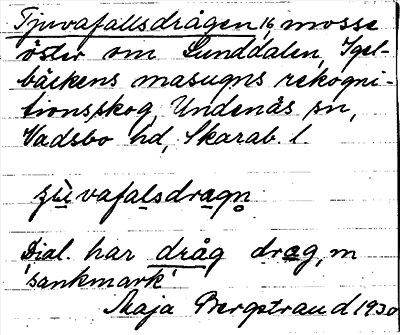 Tjuvafallsdrågen, 16, mosse
öster om Sunddalen, Igel-
bäckens masugns rekogni-
tionsskog, Undenäs sn,
Vadsbo hd, Skarab. l.
ʒuvafalsdragn
Dial. har dråg drag, m
'sankmark'
Maja Bergstrand 1930